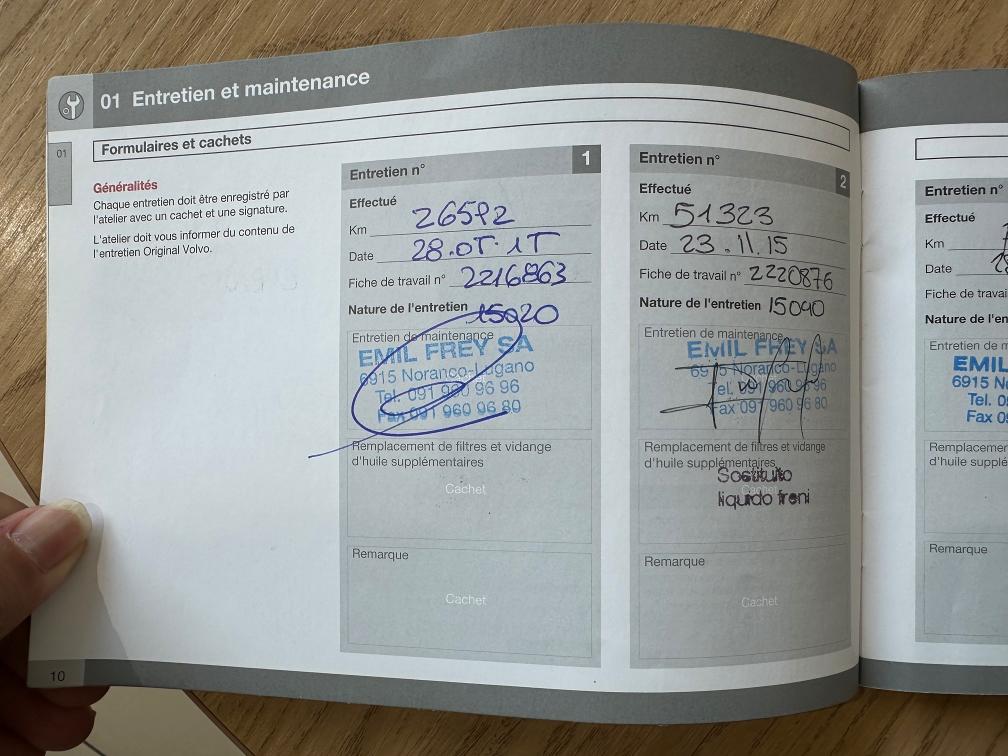 01 Entretien et maintenance
01
Formulaires et cachets
Généralités
Chaque entretien doit être enregistré par
l'atelier avec un cachet et une signature.
L'atelier doit vous informer du contenu de
l'entretien Original Volvo.
Entretien n° 1
Effectué
Km
Date 28.
Fiche de travail n° 2216863
Nature de l'entretien 15020
Entretien de maintenance
EMIL FREY SA
6915 Noranco-Lugano
Tel. 091 960 96 96
Fax 091 960 96 80
Remplacement de filtres et vidange
d'huile supplémentaires
Cachet
Remarque
Cachet
Entretien n° 2
Effectué
Km 51323
Date 23.11.15
Fiche de travail n° 2220876
Nature de l'entretien 15090
Entretien de maintenance
EMIL FREY SA
6915 Noranco-Lugano
Tel. 091 960 96 96
Fax 091 960 96 80
Remplacement de filtres et vidange
d'huile supplémentaires
Sostituito
liquido freni
Cachet
Remarque
Cachet
Entretien n°
Effectué
Km
Date
Fiche de
Nature de
Entretien de
EMIL
6915
Tel.
Fax
d'huile
Remarque
10